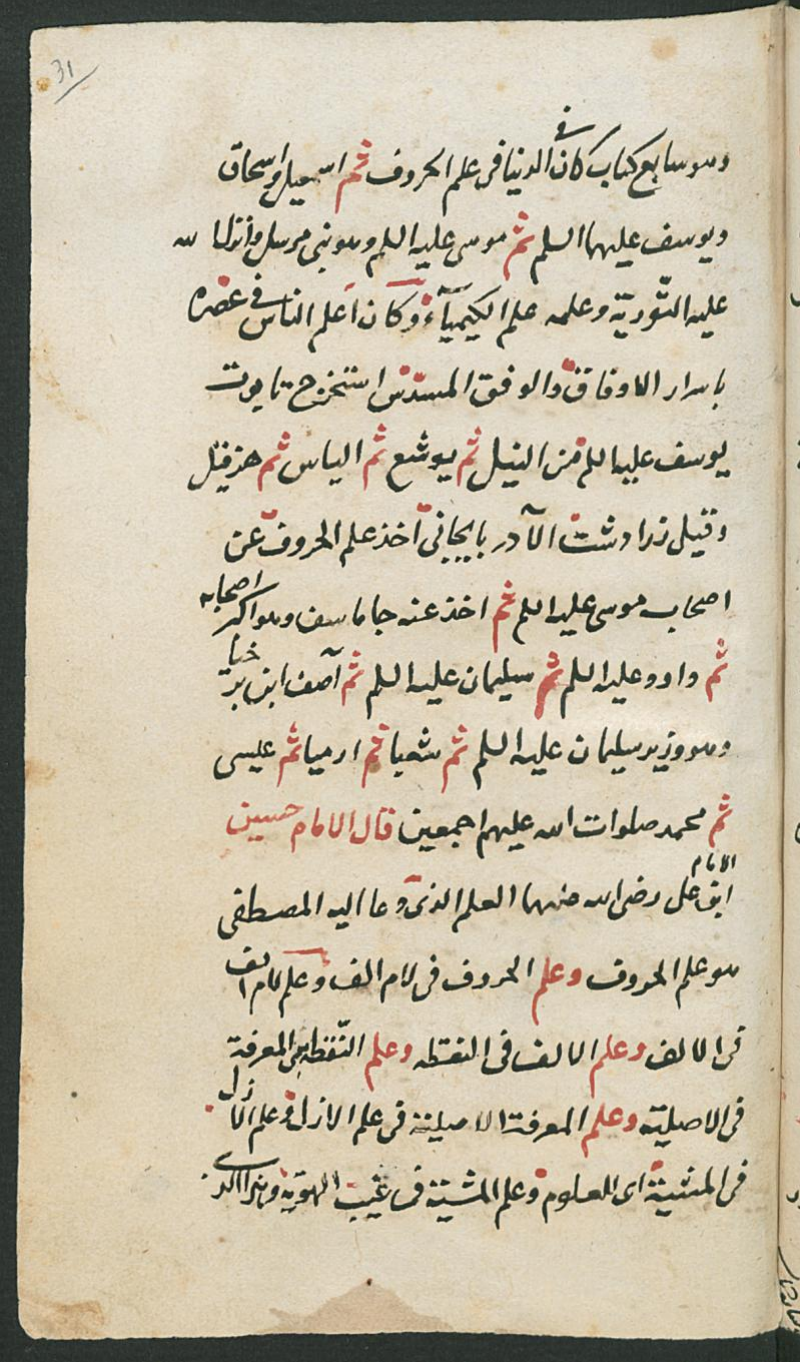 31
وهو سابع كتاب كان فى الدنيا فى علم الحروف ثم اسمعيل واسحاق
ويوسف عليهما السلم ثم موسى عليه السلم وهو نبى مرسل وانزل الله
عليه التورية وعلمه علم الكيمياء وكان اعلم الناس فى عصره
باسرار الاوفاق والوفق المسدس استخرج تابوت
يوسف عليه السلم من النيل ثم يوشع ثم الياس ثم حزقيل
وقيل زرادشت الآدربايجانى اخذ علم الحروف عن
اصحاب موسى عليه السلم ثم اخذ عنه جاماسف وهو اكبر اصحابه
ثم داود عليه السلم ثم سليمان عليه السلم ثم آصف ابن برخيا
وهو وزير سليمان عليه السلم ثم شعيا ثم ارميا ثم عيسى
ثم محمد صلوات الله عليهم اجمعين قال الامام حسين
ابن الامام على رضى الله عنهما العلم الذى دعا اليه المصطفى
هو علم الحروف وعلم الحروف فى لام الف وعلم لام الف
فى الالف وعلم الالف فى النقطه وعلم النقطه فى المعرفة
فى الاصلية وعلم المعرفة الاصلية فى علم الازل وعلم الازل
فى المشية اى المعلوم وعلم المشية فى غيب الهوية وهو الذى